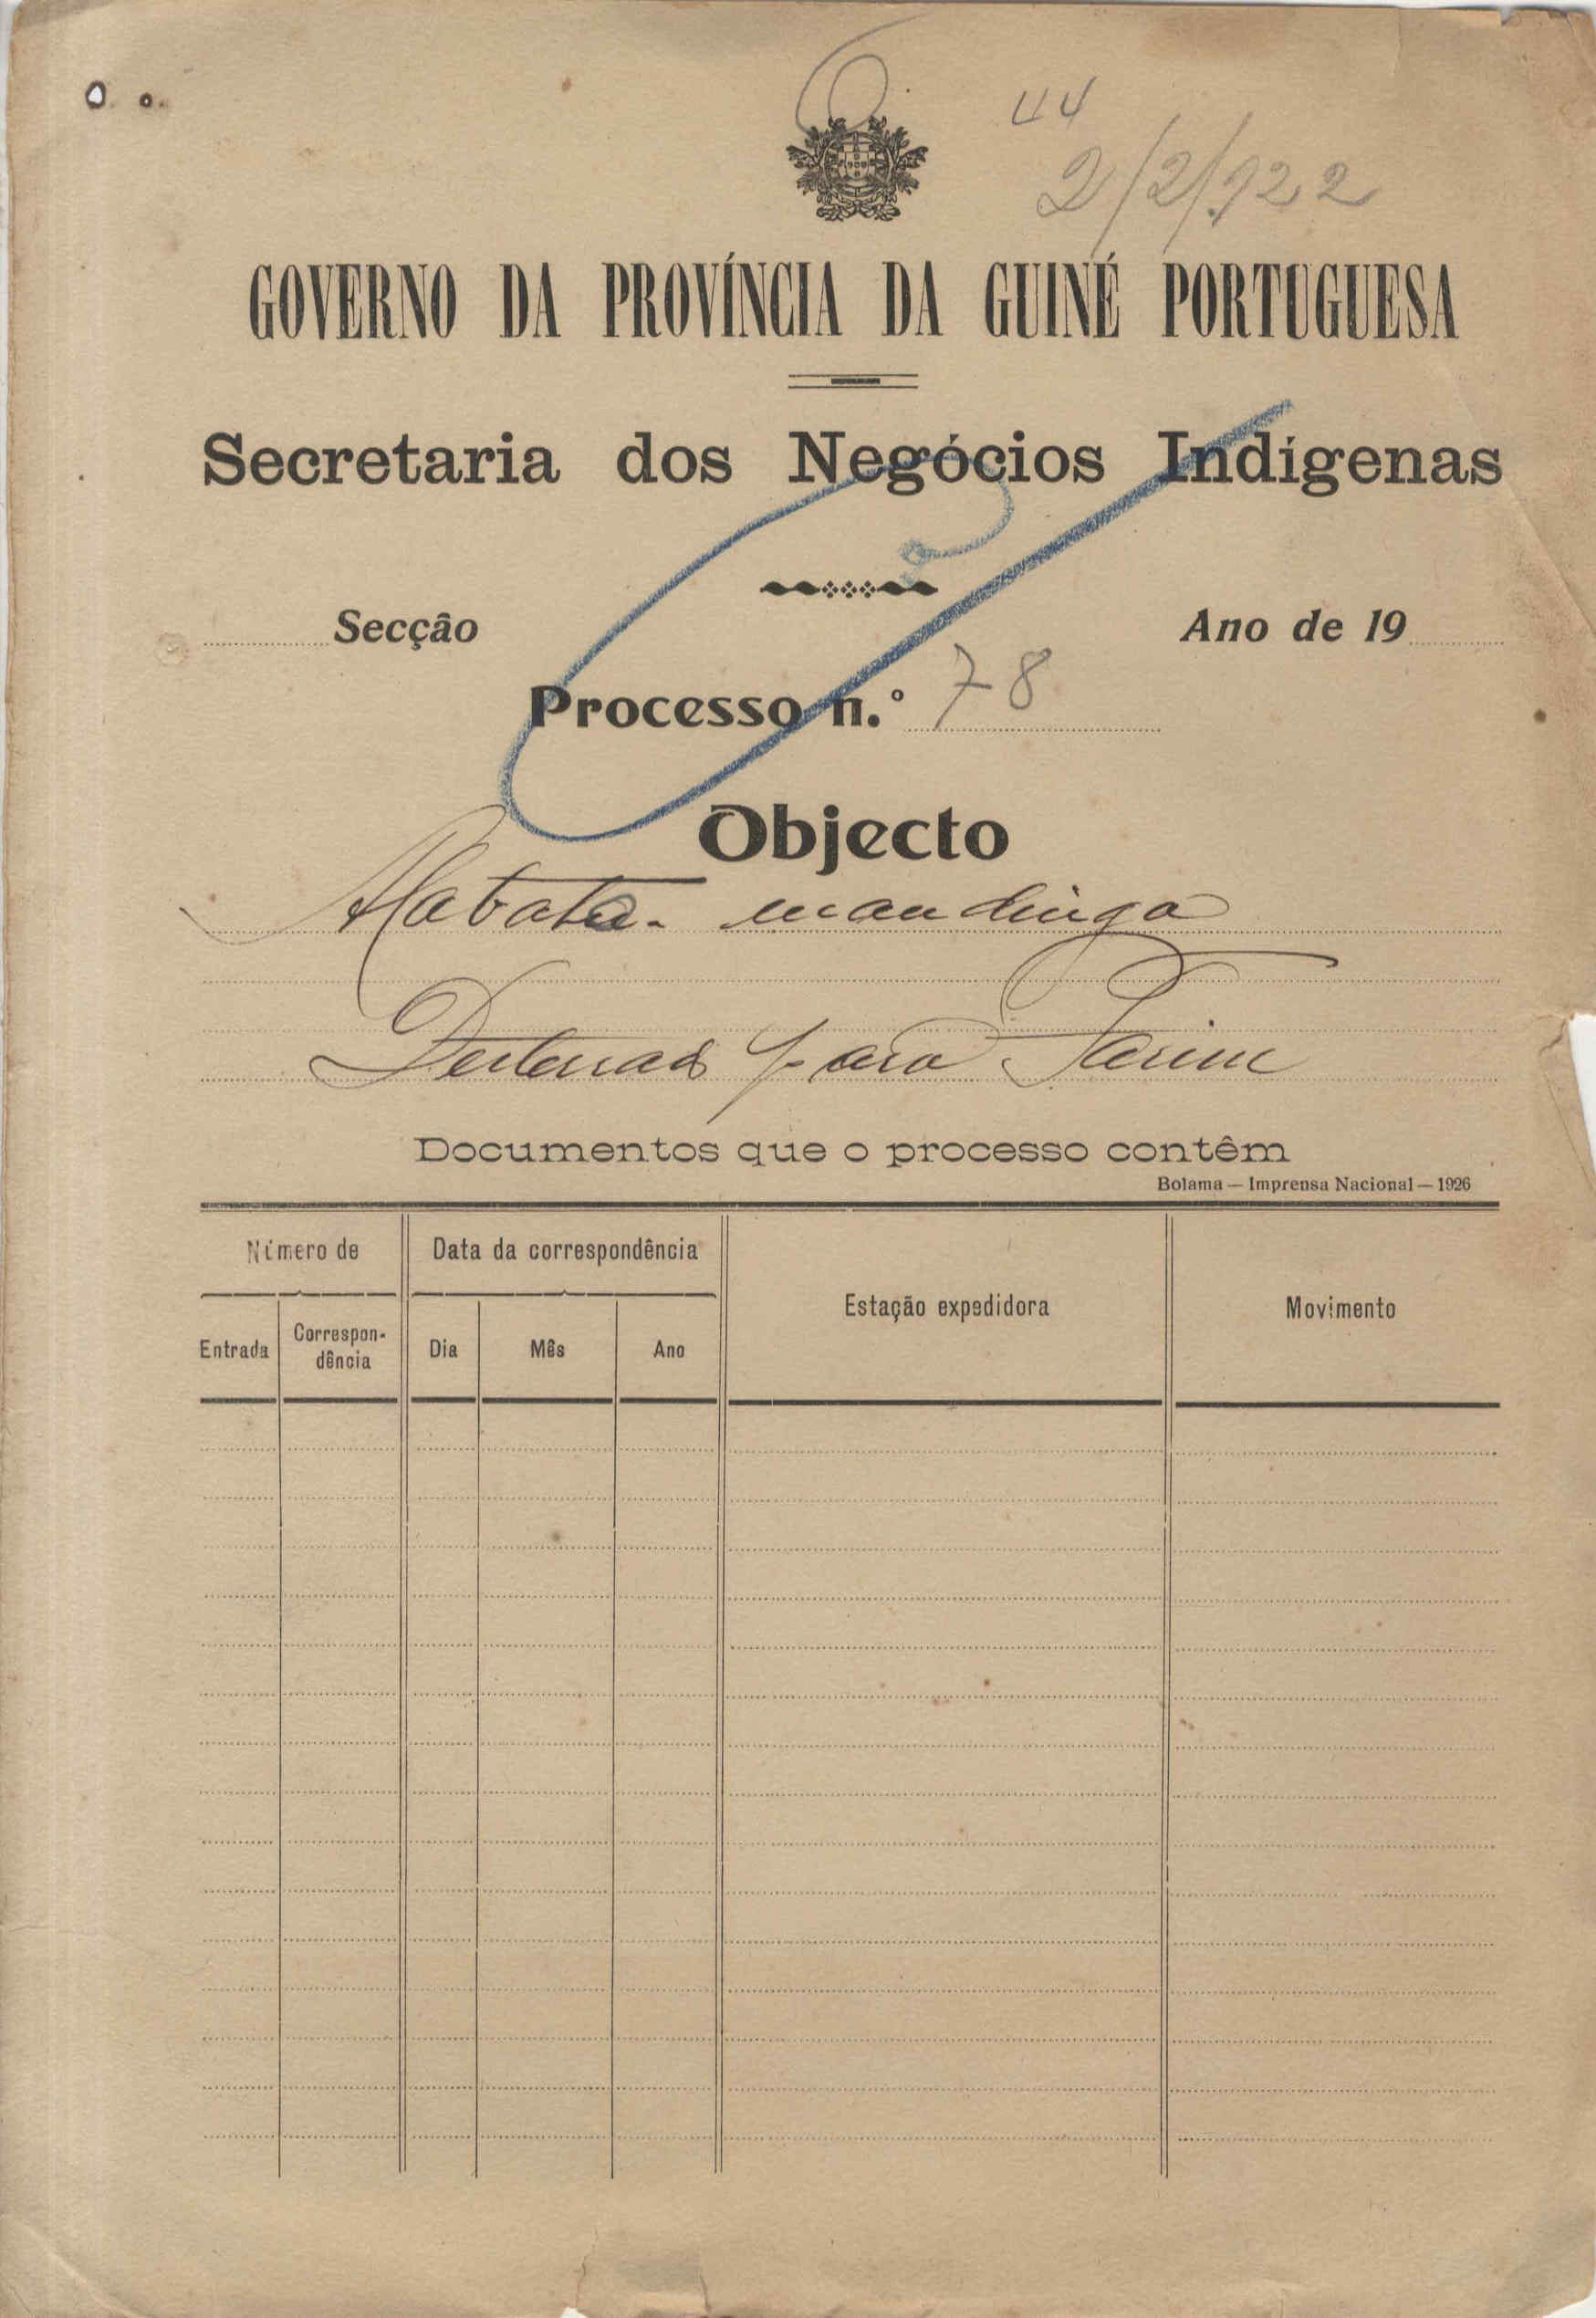 44
2/2/922
GOVERNO DA PROVÍNCIA DA GUINÉ PORTUGUESA
Secretaria dos Negócios Indígenas
Secção
Ano de 19
Processo n.º 78
Objecto
mandinga
para Farim
Documentos que o processo contêm
Bolama — Imprensa Nacional — 1926
Número de
Data da correspondência
Estação expedidora
Movimento
Entrada
Correspon-
dência
Dia
Mês
Ano